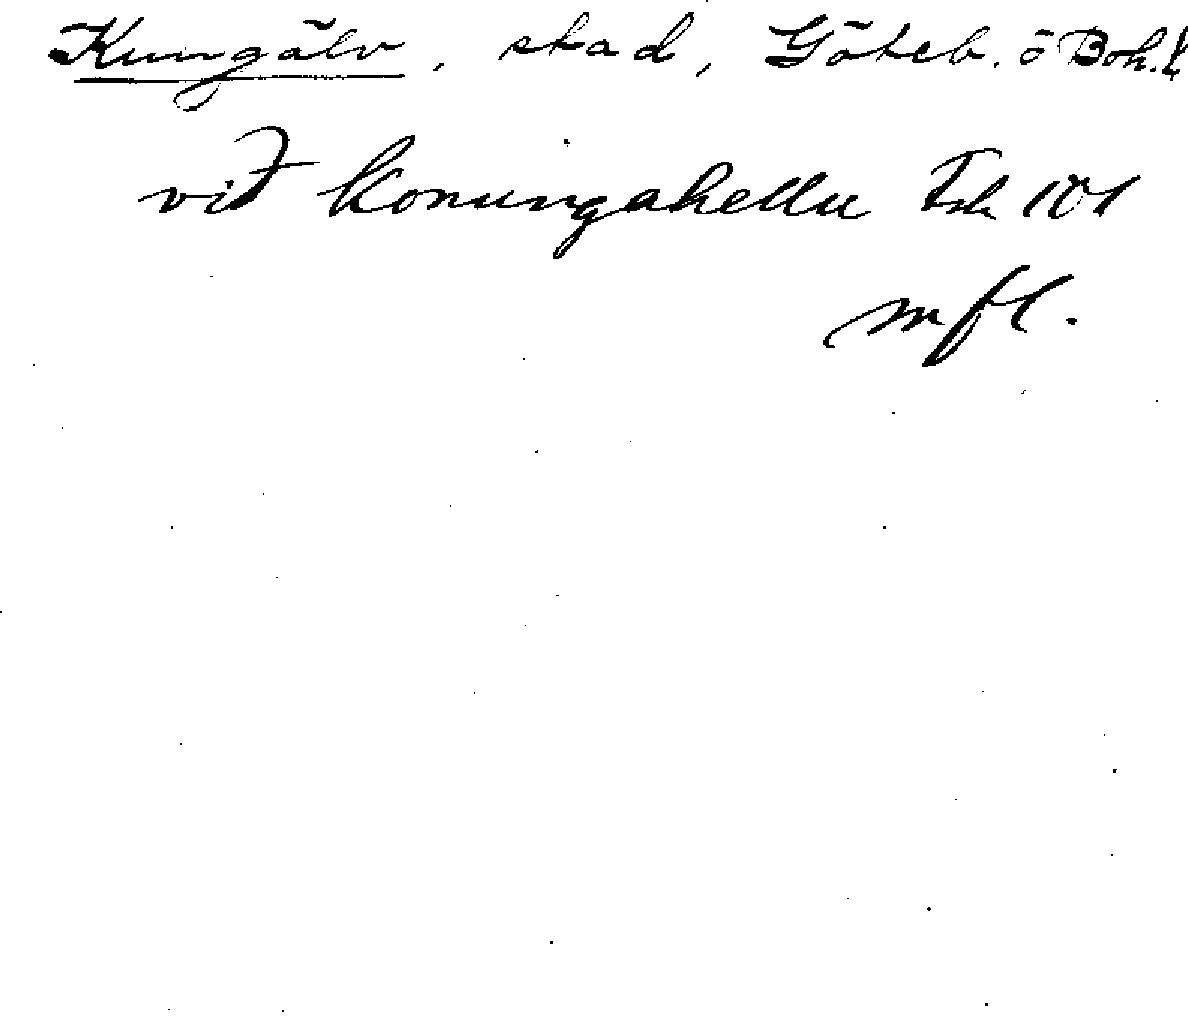 Kungälv, stad, Göteb. o Boh. l
við Konungahellu Fsk 101
m fl.